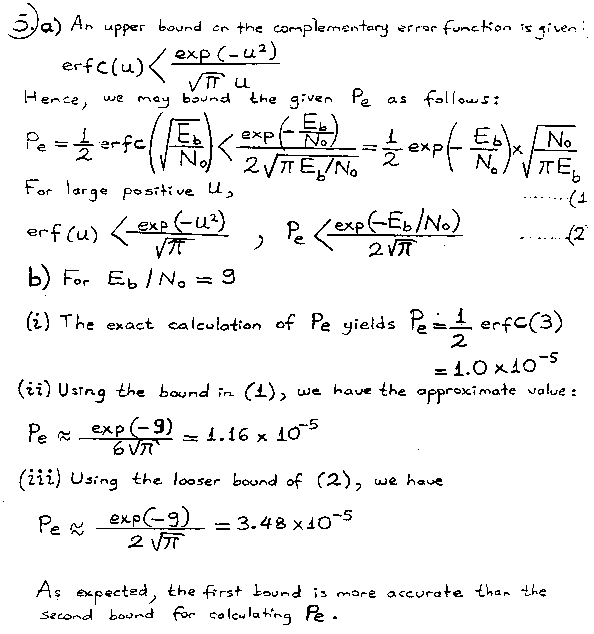 5.) a) An upper bound on the complementary error function is given:
erfc(u) < exp(-u²) / √π u
Hence, we may bound the given Pe as follows:
Pe = 1/2 erfc(√(E_b/N_o)) < exp(-E_b/N_o) / 2√(πE_b/N_o) = 1/2 exp(-E_b/N_o) × √(N_o/πE_b)
For large positive u, ........(1
erf(u) < exp(-u²)/√π , Pe < exp(-E_b/N_o) / 2√π ........(2
b) For E_b/N_o = 9
(i) The exact calculation of Pe yields Pe = 1/2 erfc(3)
= 1.0 × 10⁻⁵
(ii) Using the bound in (1), we have the approximate value:
Pe ≈ exp(-9) / 6√π = 1.16 × 10⁻⁵
(iii) Using the looser bound of (2), we have
Pe ≈ exp(-9) / 2√π = 3.48 × 10⁻⁵
As expected, the first bound is more accurate than the
second bound for calculating Pe.